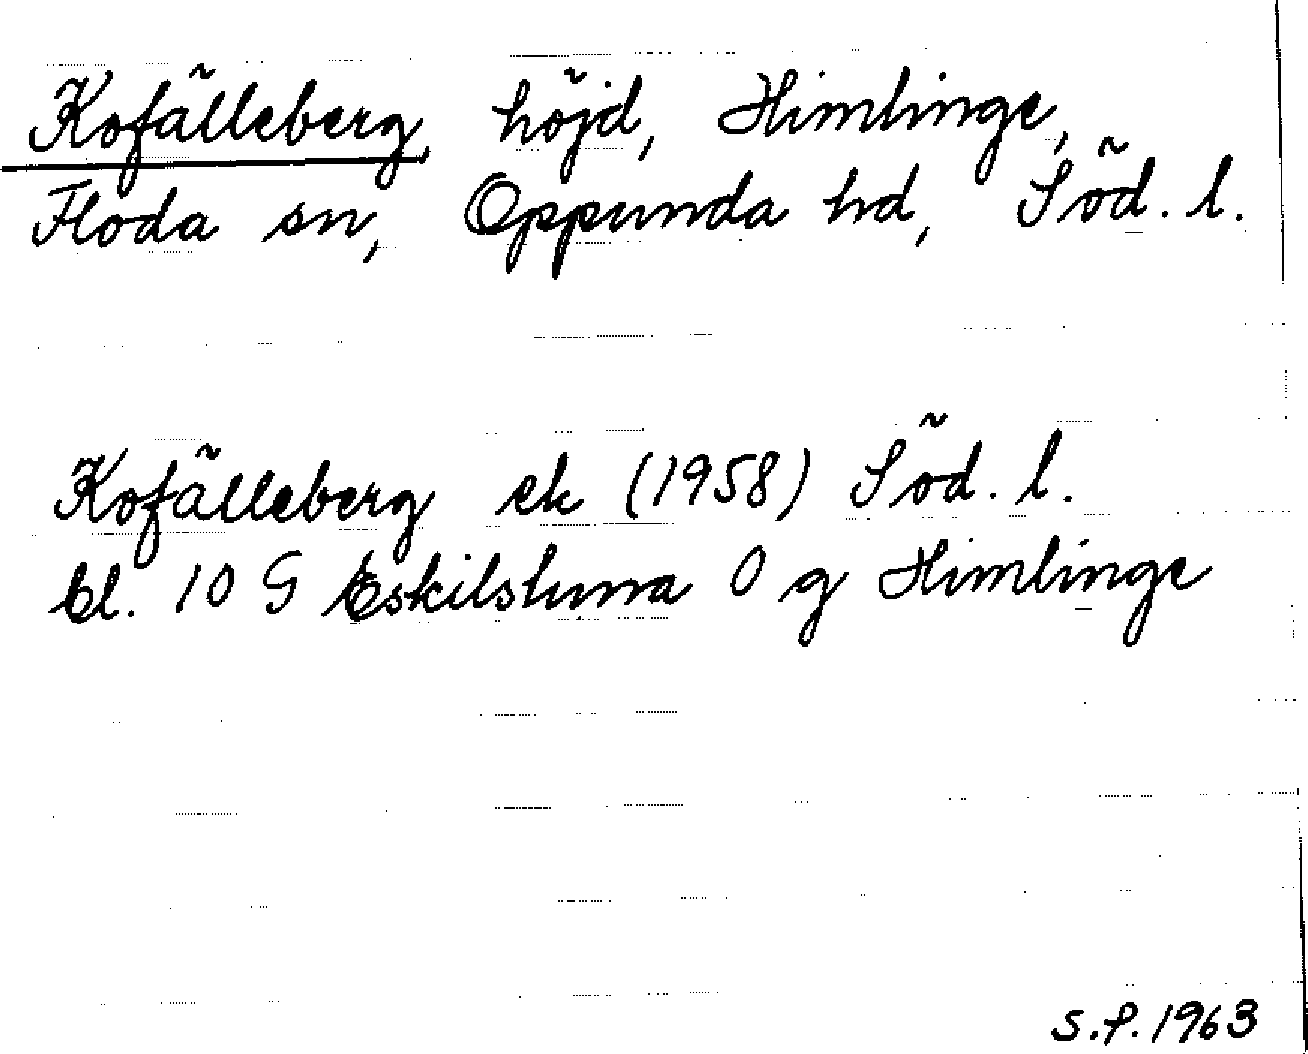 Kofälleberg, höjd, Himlinge,
Floda sn, Oppunda hd, Söd. l.
Kofälleberg ek (1958) Söd. l.
bl. 10 G Eskilstuna O g Himlinge
S.P. 1963